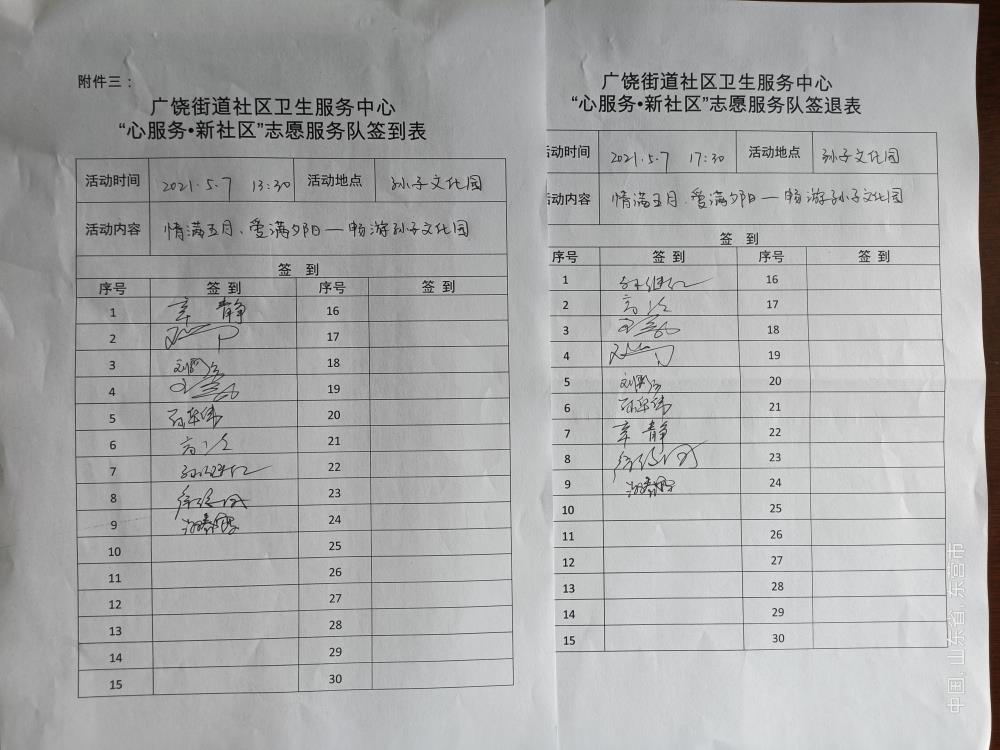 附件三：
广饶街道社区卫生服务中心
“心服务•新社区”志愿服务队签到表
活动时间 2021.5.7 13:30 活动地点 孙子文化园
活动内容 情满五月、爱满夕阳—畅游孙子文化园
签 到
序号 签 到 序号 签 到
1 辛静 16
2 17
3 18
4 19
5 20
6 21
7 22
8 23
9 24
10 25
11 26
12 27
13 28
14 29
15 30
广饶街道社区卫生服务中心
“心服务•新社区”志愿服务队签退表
活动时间 2021.5.7 17:30 活动地点 孙子文化园
活动内容 情满五月.爱满夕阳—畅游孙子文化园
签 到
序号 签 到 序号 签 到
1 16
2 17
3 18
4 19
5 20
6 21
7 辛静 22
8 23
9 24
10 25
11 26
12 27
13 28
14 29
15 30
中国.山东省.东营市